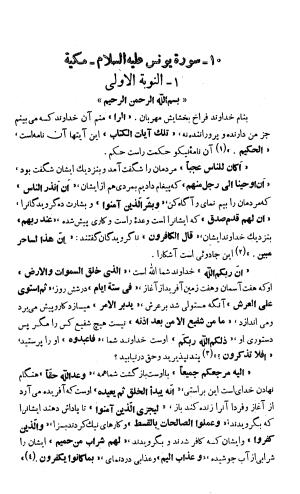 ۱۰ـ سورة یونس علیه السلام ـ مکیة
۱ـ النوبة الاولی
« بسم الله الرحمن الرحیم »
بنام خداوند فراخ بخشایش مهربان . «الرا» منم آن خداوند که می‌بینم
جز من دارنده و پروراننده نه . « تلك آیات الکتاب » این آیتها آن نامه‌است
« الحکیم . »(۱) آن نامهٔ نیکو حکمت راست حکم .
« اکان للناس عجبا » مردمان را شگفت آمد و بنزدیك ایشان شگفت بود ؛
« ان اوحینا الی رجل منهم » که پیغام دادیم بمردی هم از ایشان ، « ان انذر الناس »
که مردمان را بیم نمای و آگاه کن « وبشر الذین آمنوا » و بشارت ده گرویدگان را
« ان لهم قدم صدق » که ایشانرا است وعدهٔ راست و کاری پیش شده « عند ربهم »
بنزدیك خداوند ایشان ، « قال الکافرون » ناگرویدگان گفتند : « ان هذا لساحر
مبین . »(۲) این جادوئی است آشکارا .
« ان ربکم الله » خداوند شما الله است : « الذی خلق السموات والارض »
او که هفت آسمان و هفت زمین آفرید از آغاز « فی ستة ایام » در شش روز ، « ثم استوی
علی العرش » آنگه مستولی شد بر عرش ، « یدبر الامر » میسازد کار و پیش می‌برد
ومی اندازد ، « ما من شفیع الا من بعد اذنه » نیست هیچ شفیع کس را مگر پس
دستوری او « ذلکم الله ربکم » اوست خداوند شما ، « فاعبدوه » او را پرستید
« افلا تذکرون »(۳) پند نپذیرید و حق در نیابید ؟
« الیه مرجعکم جمیعا » با اوست باز گشت شما همه « وعد الله حقا » هنگام
نهادن خدای است این براستی ، « انه یبدأ الخلق ثم یعیده » اوست که آفریده می آرد
از آغاز و فردا آنرا زنده کند باز ، « لیجزی الذین آمنوا » تا پاداش دهند ایشانرا
که بگرویدند « وعملوا الصالحات بالقسط » و کارهای نیك کردند بسزا « والذین
کفروا » و ایشان که کافر شدند و بنگرویدند ، « لهم شراب من حمیم » ایشان را
شرابی از آب جوشیده ، « وعذاب الیم » و عذابی دردنمای « بما کانوا یکفرون .(٤) »